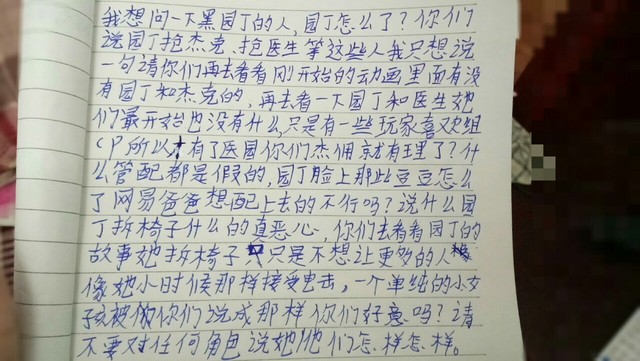 我想问一下黑园丁的人,园丁怎么了?你们
说园丁抢杰克、抢医生等这些人我只想说
一句请你们再去看看刚开始的动画里面有没
有园丁和杰克的,再去看一下园丁和医生她
们最开始也没有什么,只是有一些玩家喜欢组
CP所以才有了医园你们杰佣就有理了?什
么管配都是假的,园丁脸上那些豆豆怎么
了网易爸爸想配上去的不行吗?说什么园
丁拆椅子什么的真恶心,你们去看看园丁的
故事她拆椅子只是不想让更多的人
像她小时候那样接受电击,一个单纯的小女
孩被你们说成那样你们好意吗?请
不要对任何角色说她/他们怎样怎样